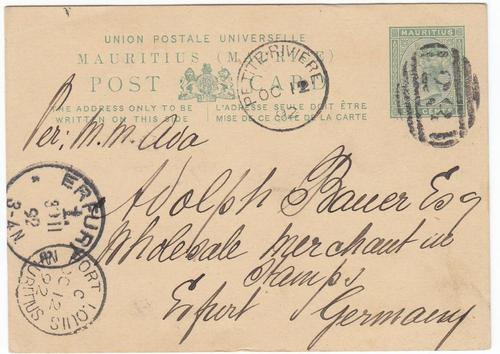 UNION POSTALE UNIVERSELLE
MAURITIUS (MAURICE)
POST CARD
THE ADDRESS ONLY TO BE
WRITTEN ON THIS SIDE
L'ADRESSE SEULE DOIT ÊTRE
MISE DE CE CÔTÉ DE LA CARTE
MAURITIUS
PETITE-RIVIERE
OC 12
92
Per: M.M. Ada
Adolph Bauer Esq
Wholesale Merchant in
Stamps
Erfurt Germany
ERFURT
1
92
3-4 N
PORT LOUIS
C
OC 12
92
MAURITIUS